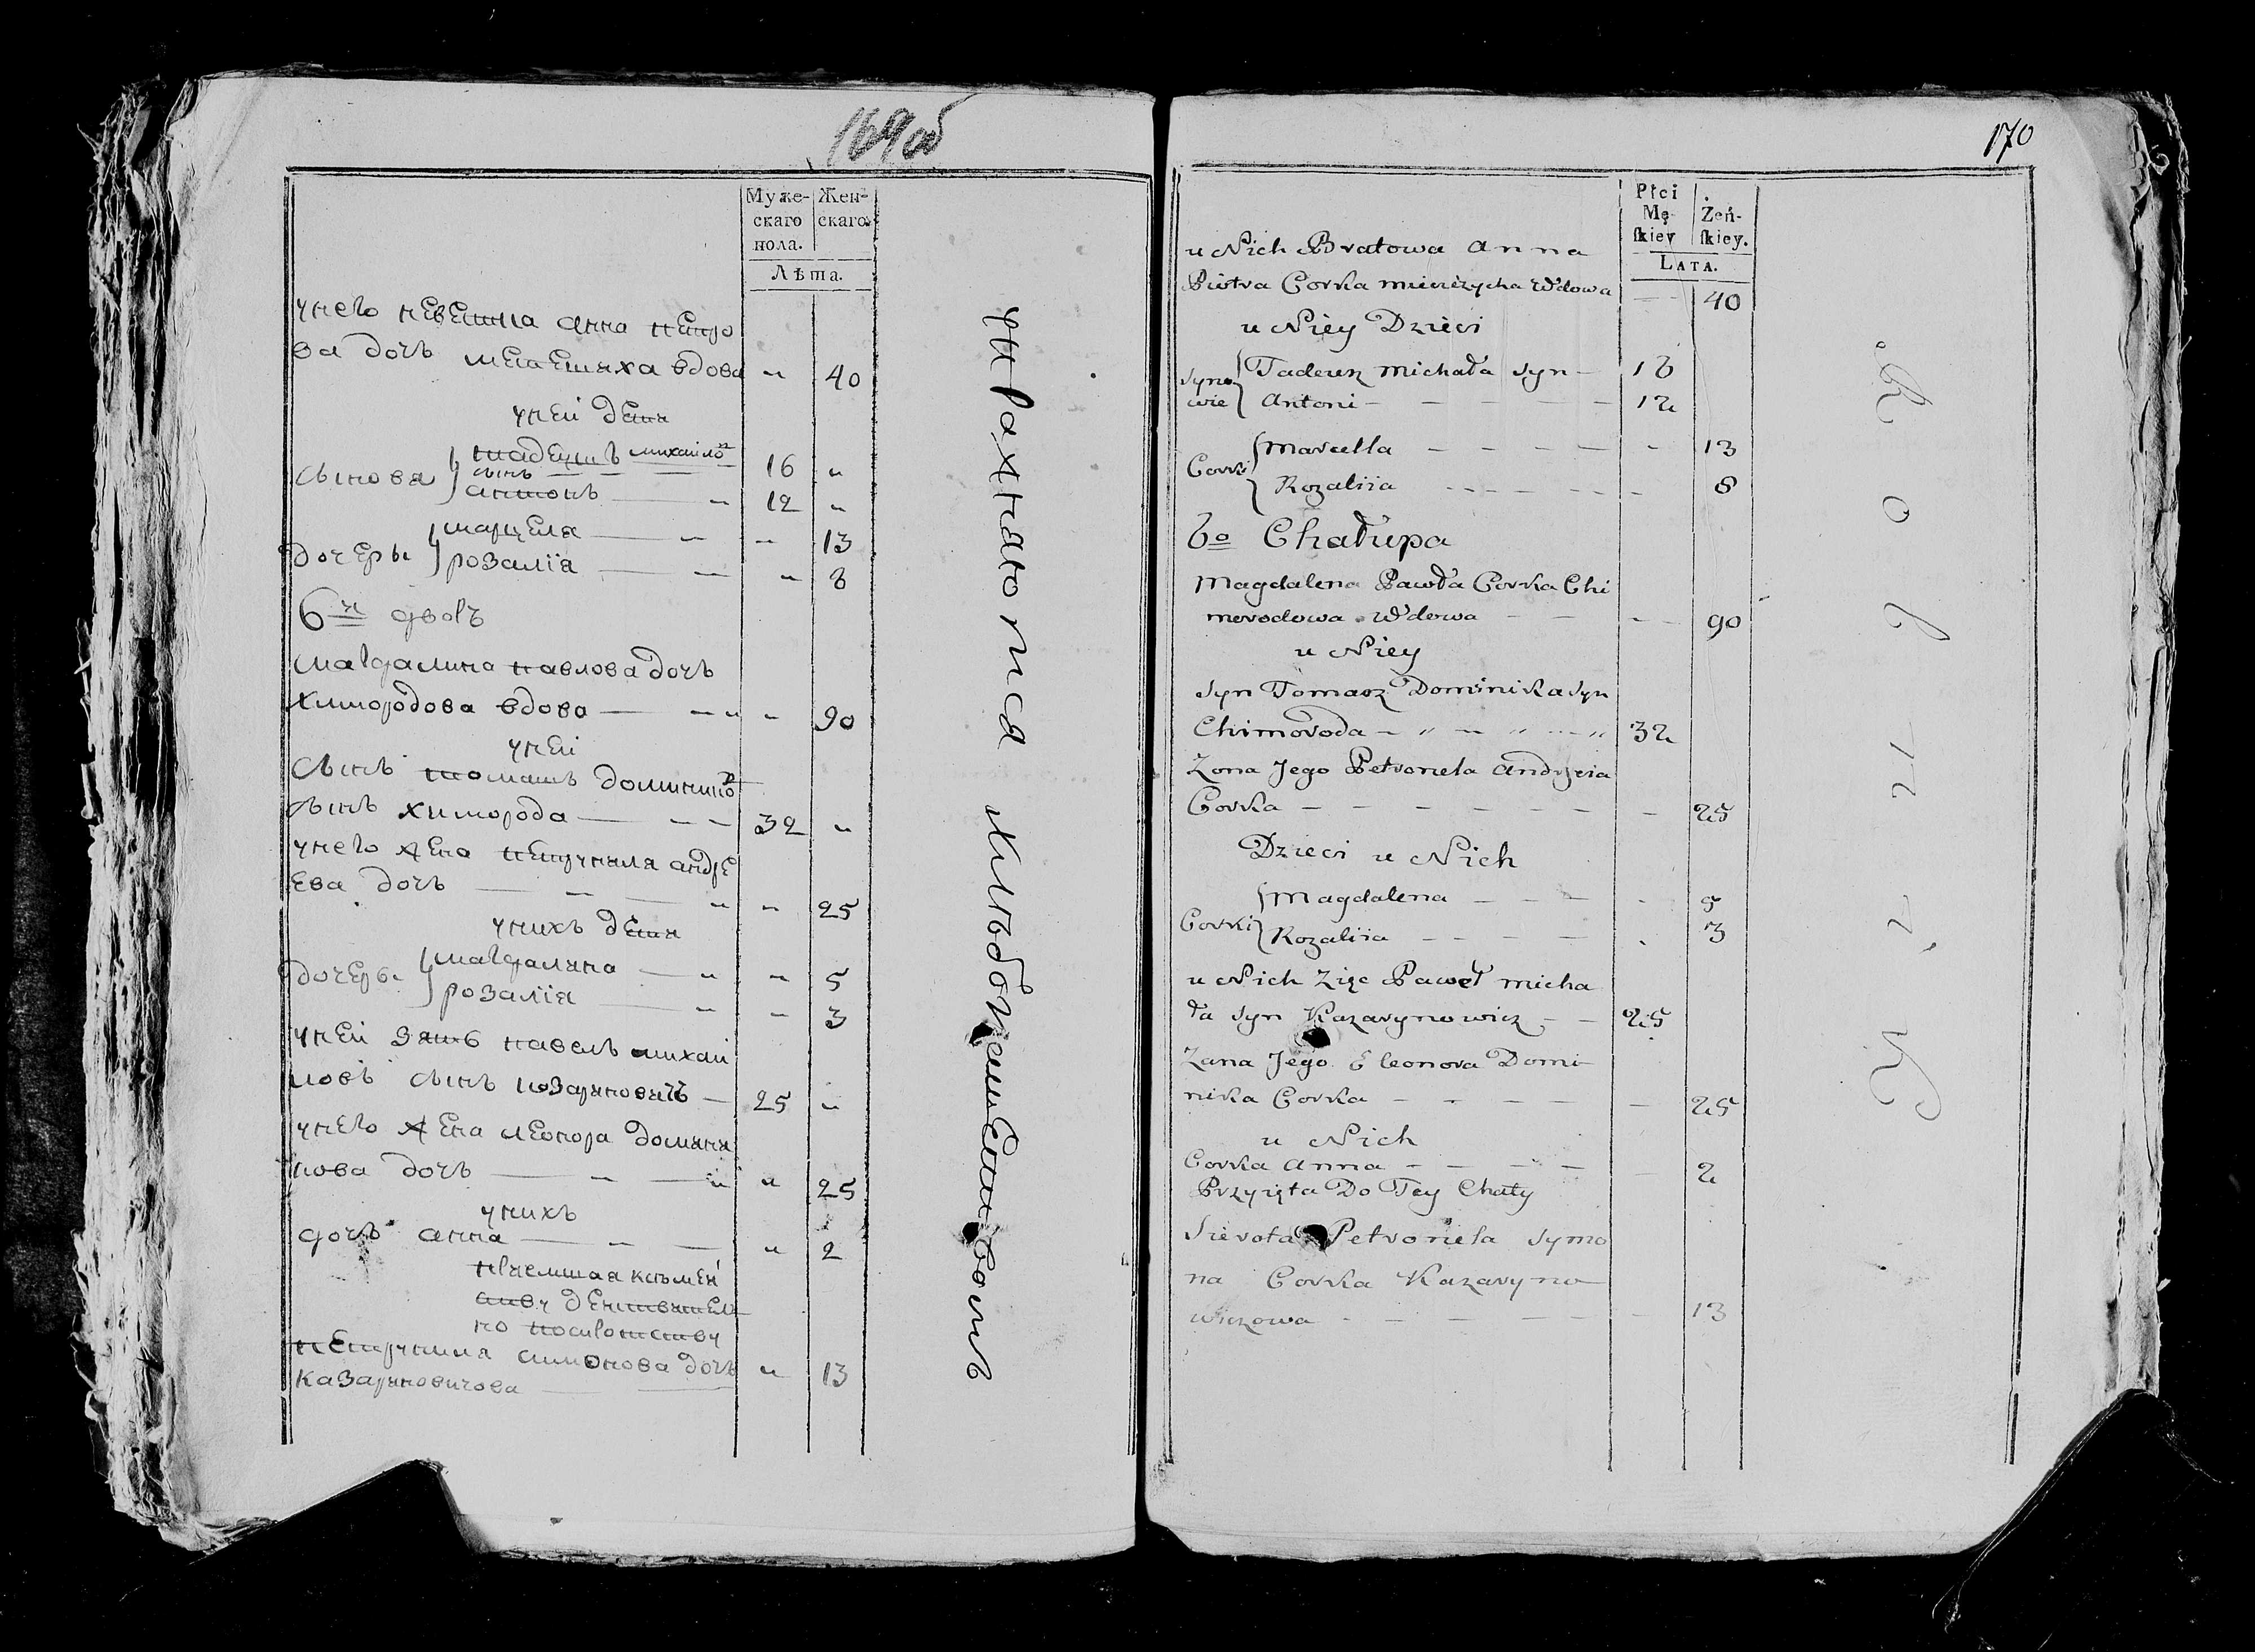 169 об
Муже-
скаго
пола.
Жен-
скаго.
Лѣта.
у него невестка анна петро
ва дочь вдова " 40
у неи дети
сынова тадеушъ михайло
сынъ 16 "
антонъ " 12 "
дочеры марцеля " " 13
розалiя " 8
6й дворъ
магдалина павлова дочь
химородова вдова " " 90
у неи
сынъ томашъ доминико
сынъ химорода 32 "
у него жена петрунеля андре
ева дочь " " 25
у нихъ дети
дочеры магдалина " " 5
розалiя " " 3
у неи зять павелъ михаи
ловъ сынъ козариновичъ 25 "
у него жена леонора домини
кова дочь " " 25
у нихъ
дочъ анна " 2
симонова дочъ " 13
казариновичова
170
Płci
Mę-
ſkiey
Żeń-
ſkiey.
LATA.
u Nich Bratowa Anna
Piotra Corka Wdowa 40
u Niey Dzieci
Syno
wie
Tadeusz Michała Syn 16
Antoni 12
Corki
Marcella 13
Rozaliia 8
6o Chałupa
Magdalena Pawła Corka Chi
morodowa Wdowa 90
u Niey
Syn Tomasz Dominika Syn
Chimoroda 32
Zona Jego Petronela Andrzeia
Corka 25
Dzieci u Nich
Corki
Magdalena 5
Rozaliia 3
u Nich Zięc Paweł Micha
ła Syn Kazarynowicz 25
Zana Jego Eleonora Domi
nika Corka 25
u Nich
Corka Anna 2
Przyięta Do Tey Chaty
Sierota Petronela Symo
na Corka Kazaryno
wiczowa 13